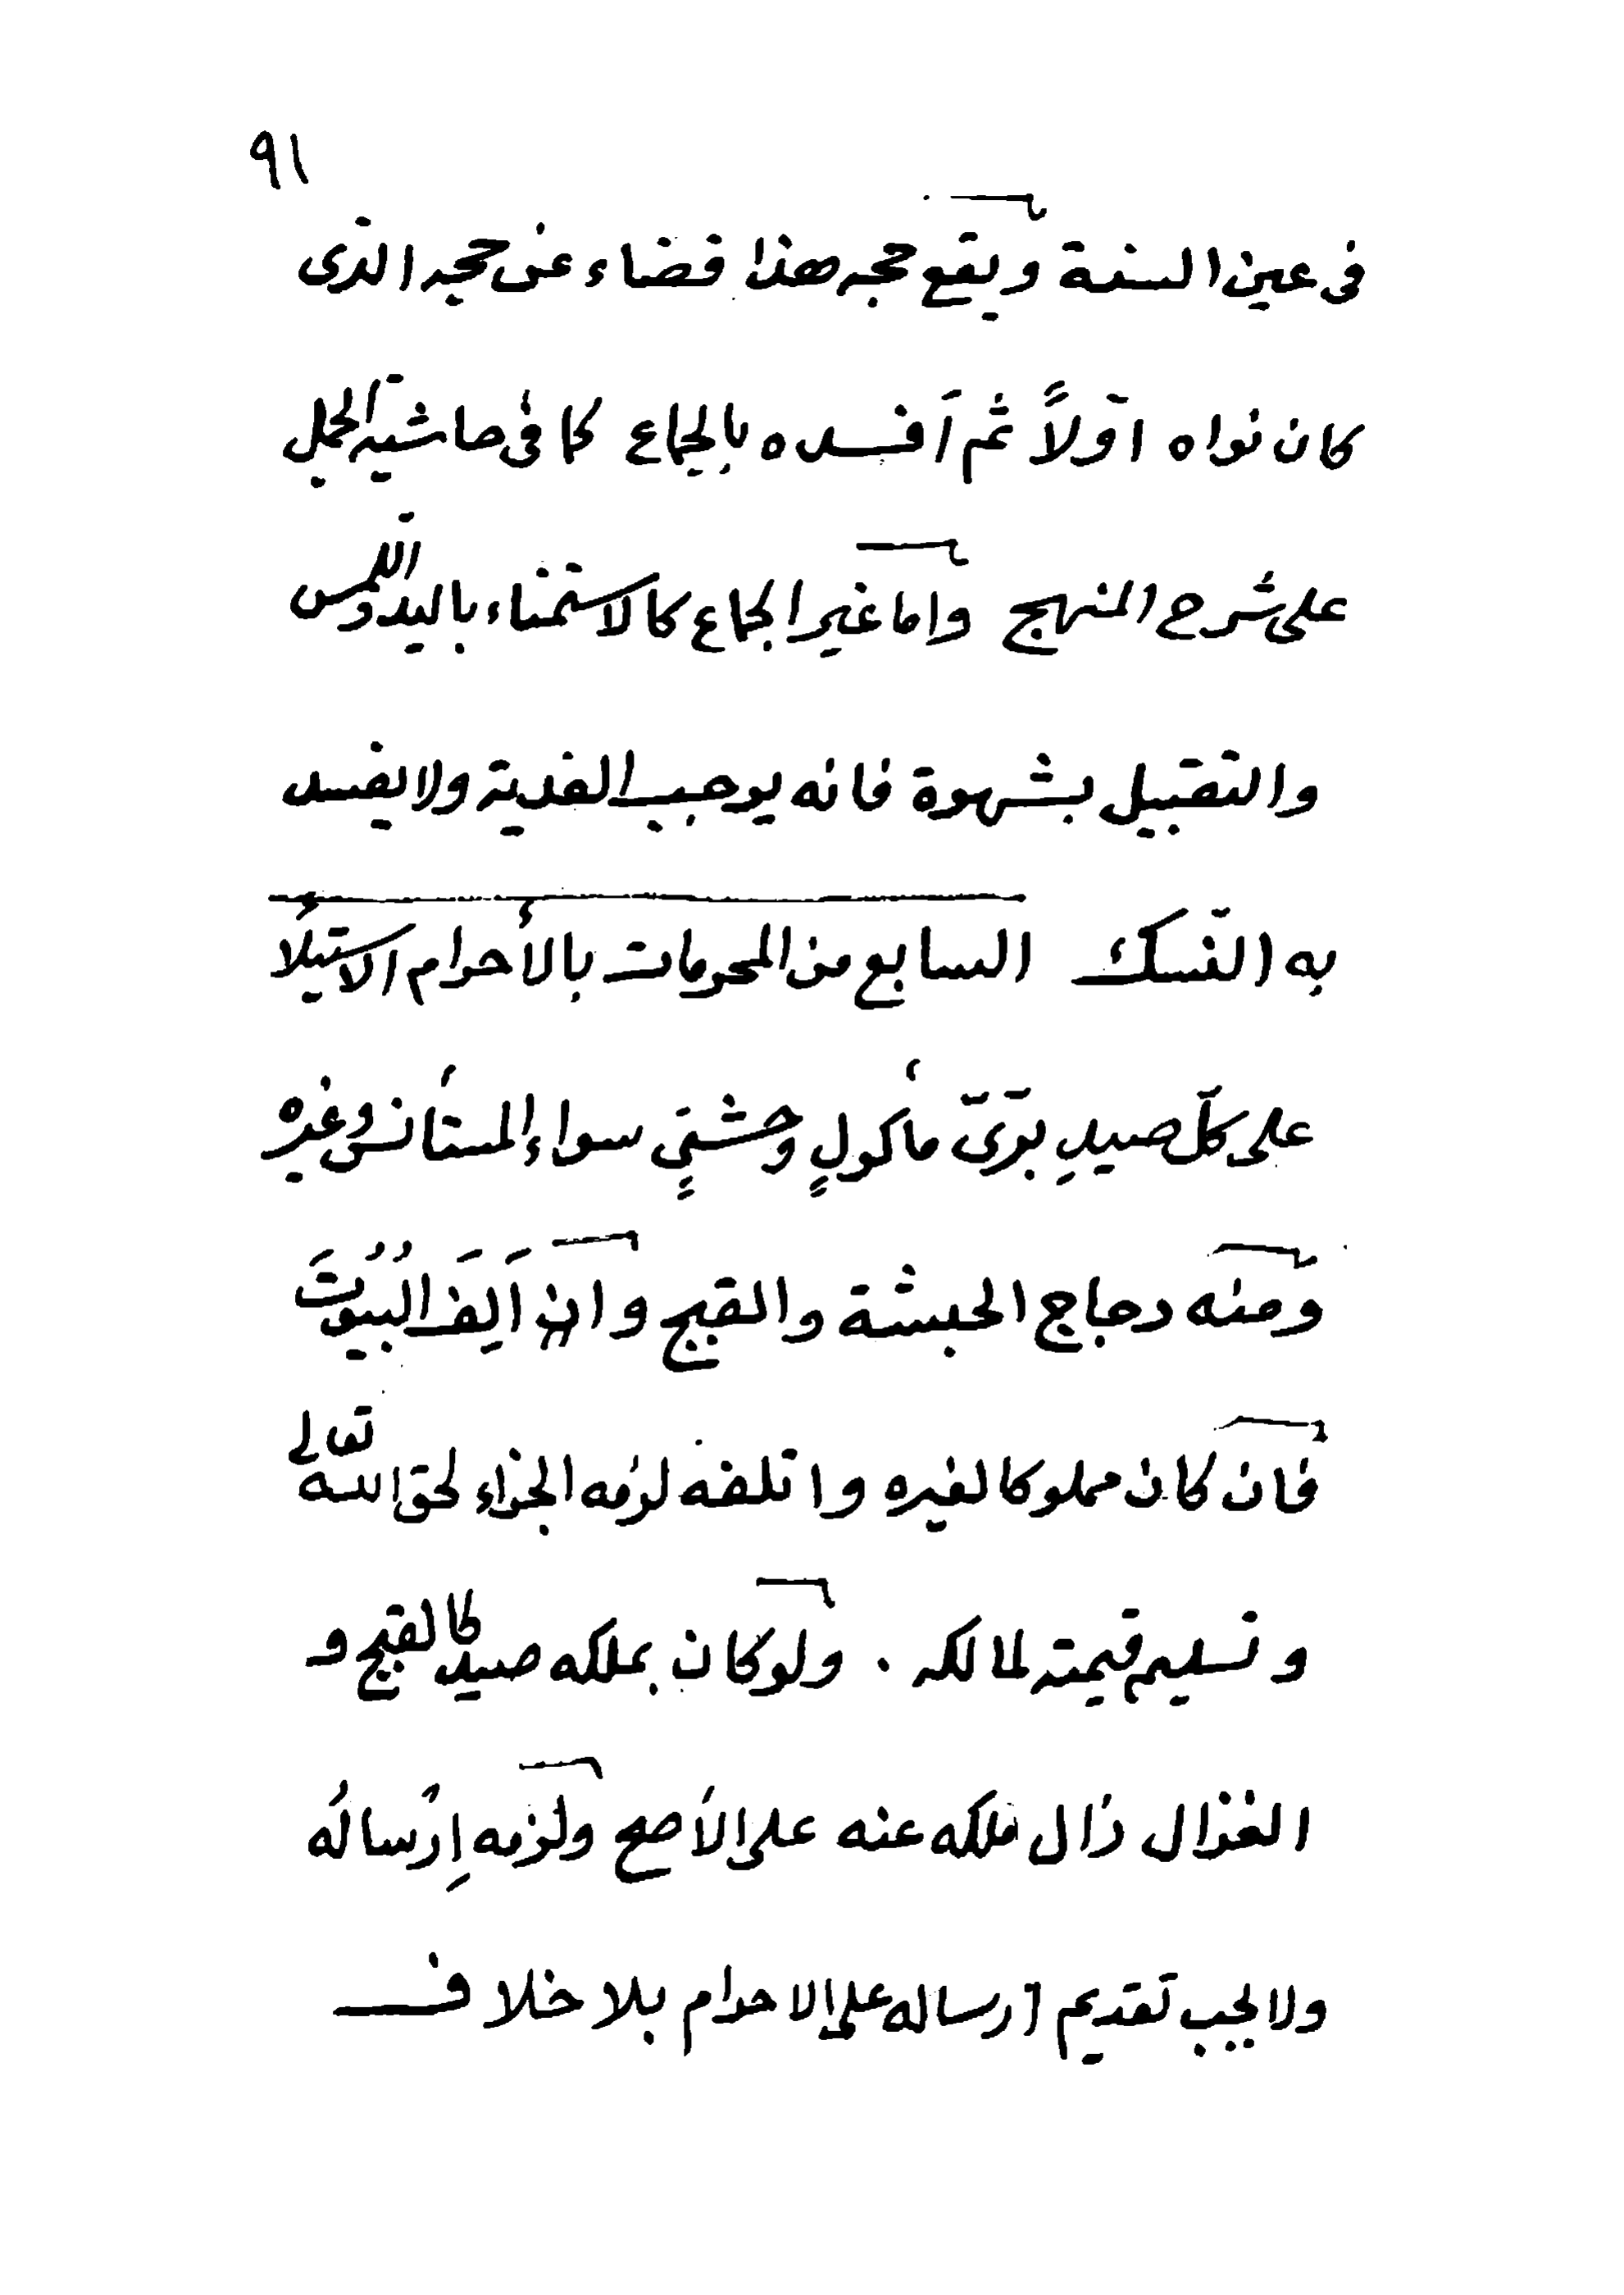 ٩١
فى عين السنة ويقع حجه هذا قضاء عن حجه الذى
كان نواه اوّلاً ثم أفسده بالجماع كما فى حاشية الجمل
على شرح المنهج واما غير الجماع كالاستمناء باليد واللمس
والتقبيل بشهوة فانه يوجب الفدية ولا يفسد
به النسك السابع من المحرمات بالأحرام الاستيلاُ
على كلّ صيدِ برّىّ مأكولٍ وحشيٍّ سواء المستأنس وغيره
ومنه دجاج الحبشة والقبج وان اَلِفَ البُيُوتَ
فان كان مملوكا لغيره واتلفه لزمه الجزاء لحق الله تعالى
وتسليم قيمته لمالكه . ولو كان بملكه صيد كالقبج و
الغزال زال ملكه عنه على الأصح ولزمه اِرْسالُه
ولا يجب تقديم ارساله على الاحرام بلا خلاف